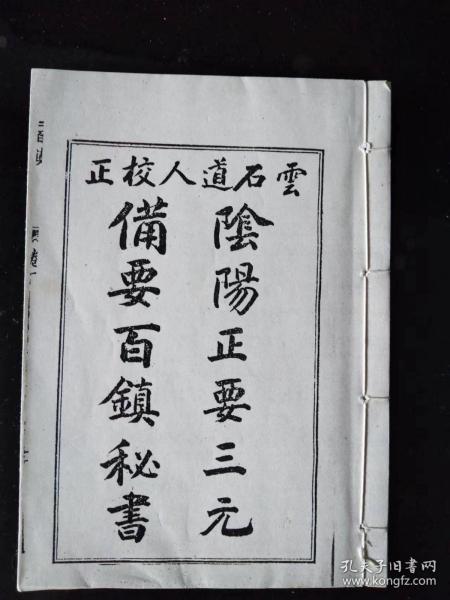 雲石道人校正
陰陽正要三元
備要百鎮秘書
孔夫子旧书网
www.kongfz.com